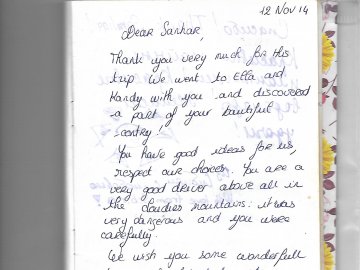 12 NOV 14
Dear Sanhar,
Thank you very much for this
trip. We went to Ella and
Kandy with you and discovered
a part of your bautiful
contry!
You have good ideas for us,
respect our choices. You are a
very good driver above all in
the cloudies mountains: it was
very dangerous and you were
carefully.
We wish you some wonderfull